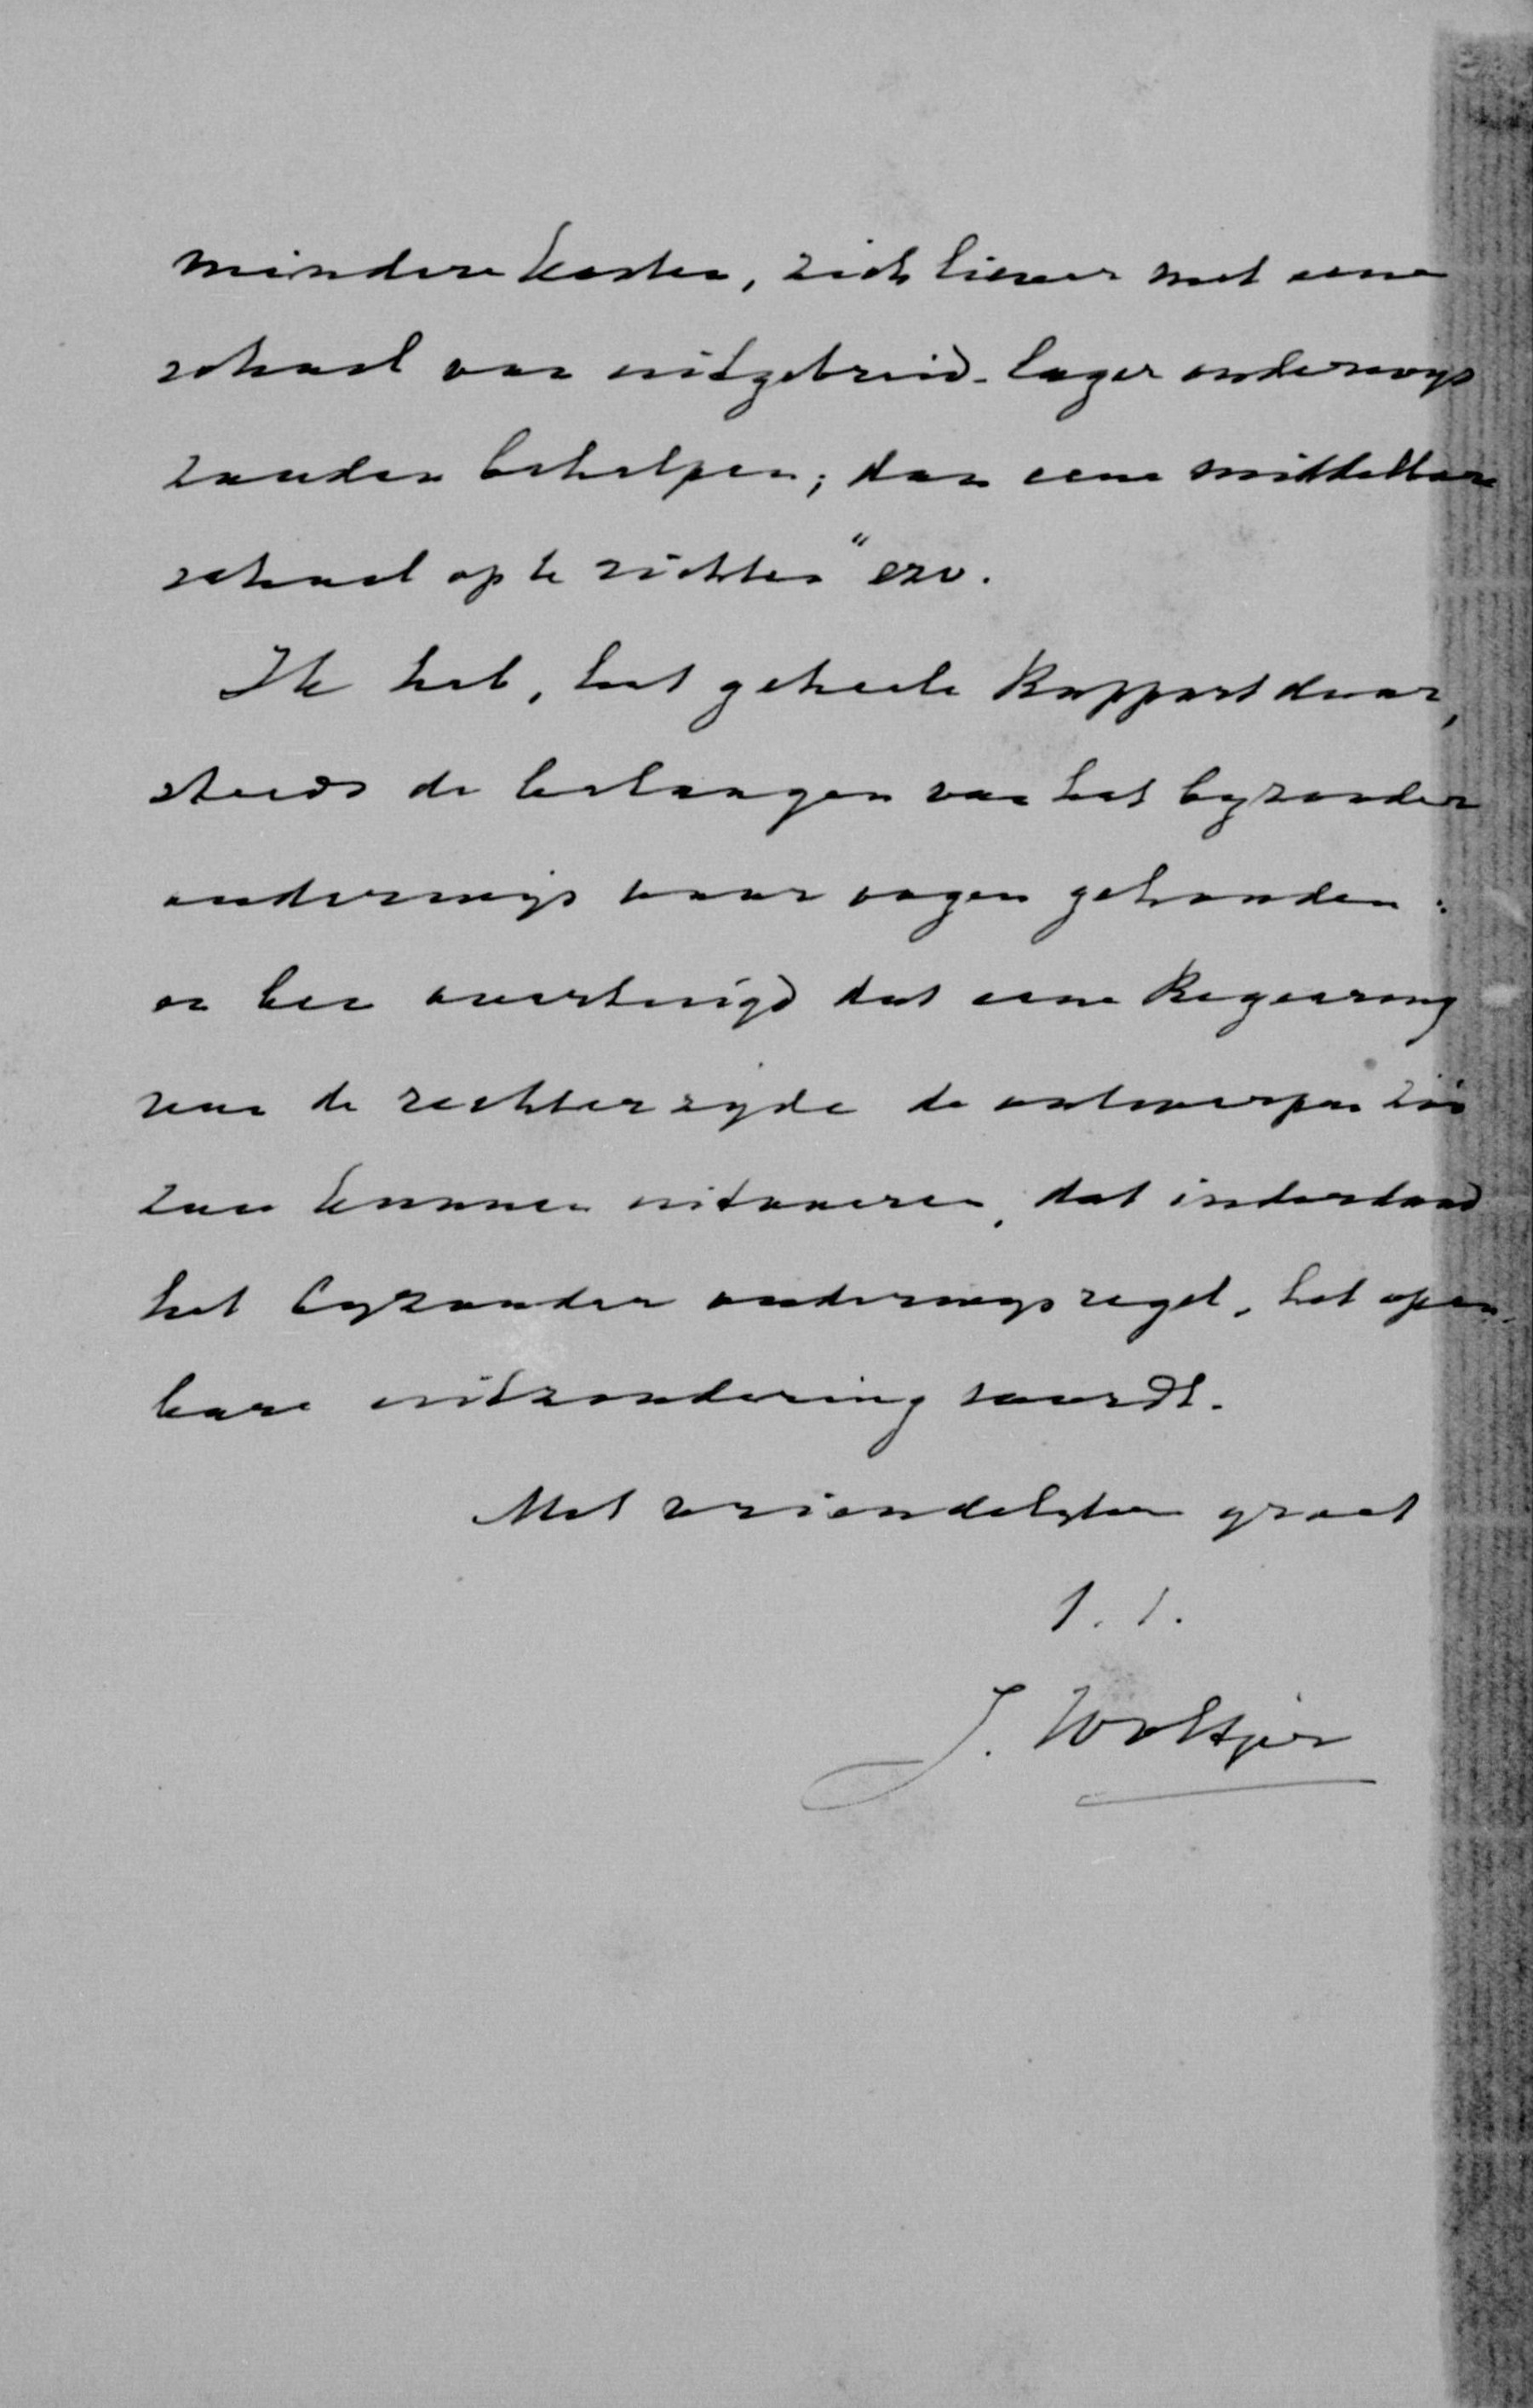 mindere kosten, zich liever met eene
school van uitgebreid-lager onderwys
zouden behelpen; dan eene middelbare
school op te richten" enz.
Ik heb, het geheele Rapport door,
steeds de belangen van het byzonder
onderwijs voor oogen gehouden:
en ben overtuigd dat eene Regeering
van de rechterzyde de ontwerpen zóó
zou kunnen uitvoeren, dat inderdaad
het byzonder onderwys regel, het open-
bare uitzondering wordt.
Met vriendelyken groet
t. t.
J. Woltjer